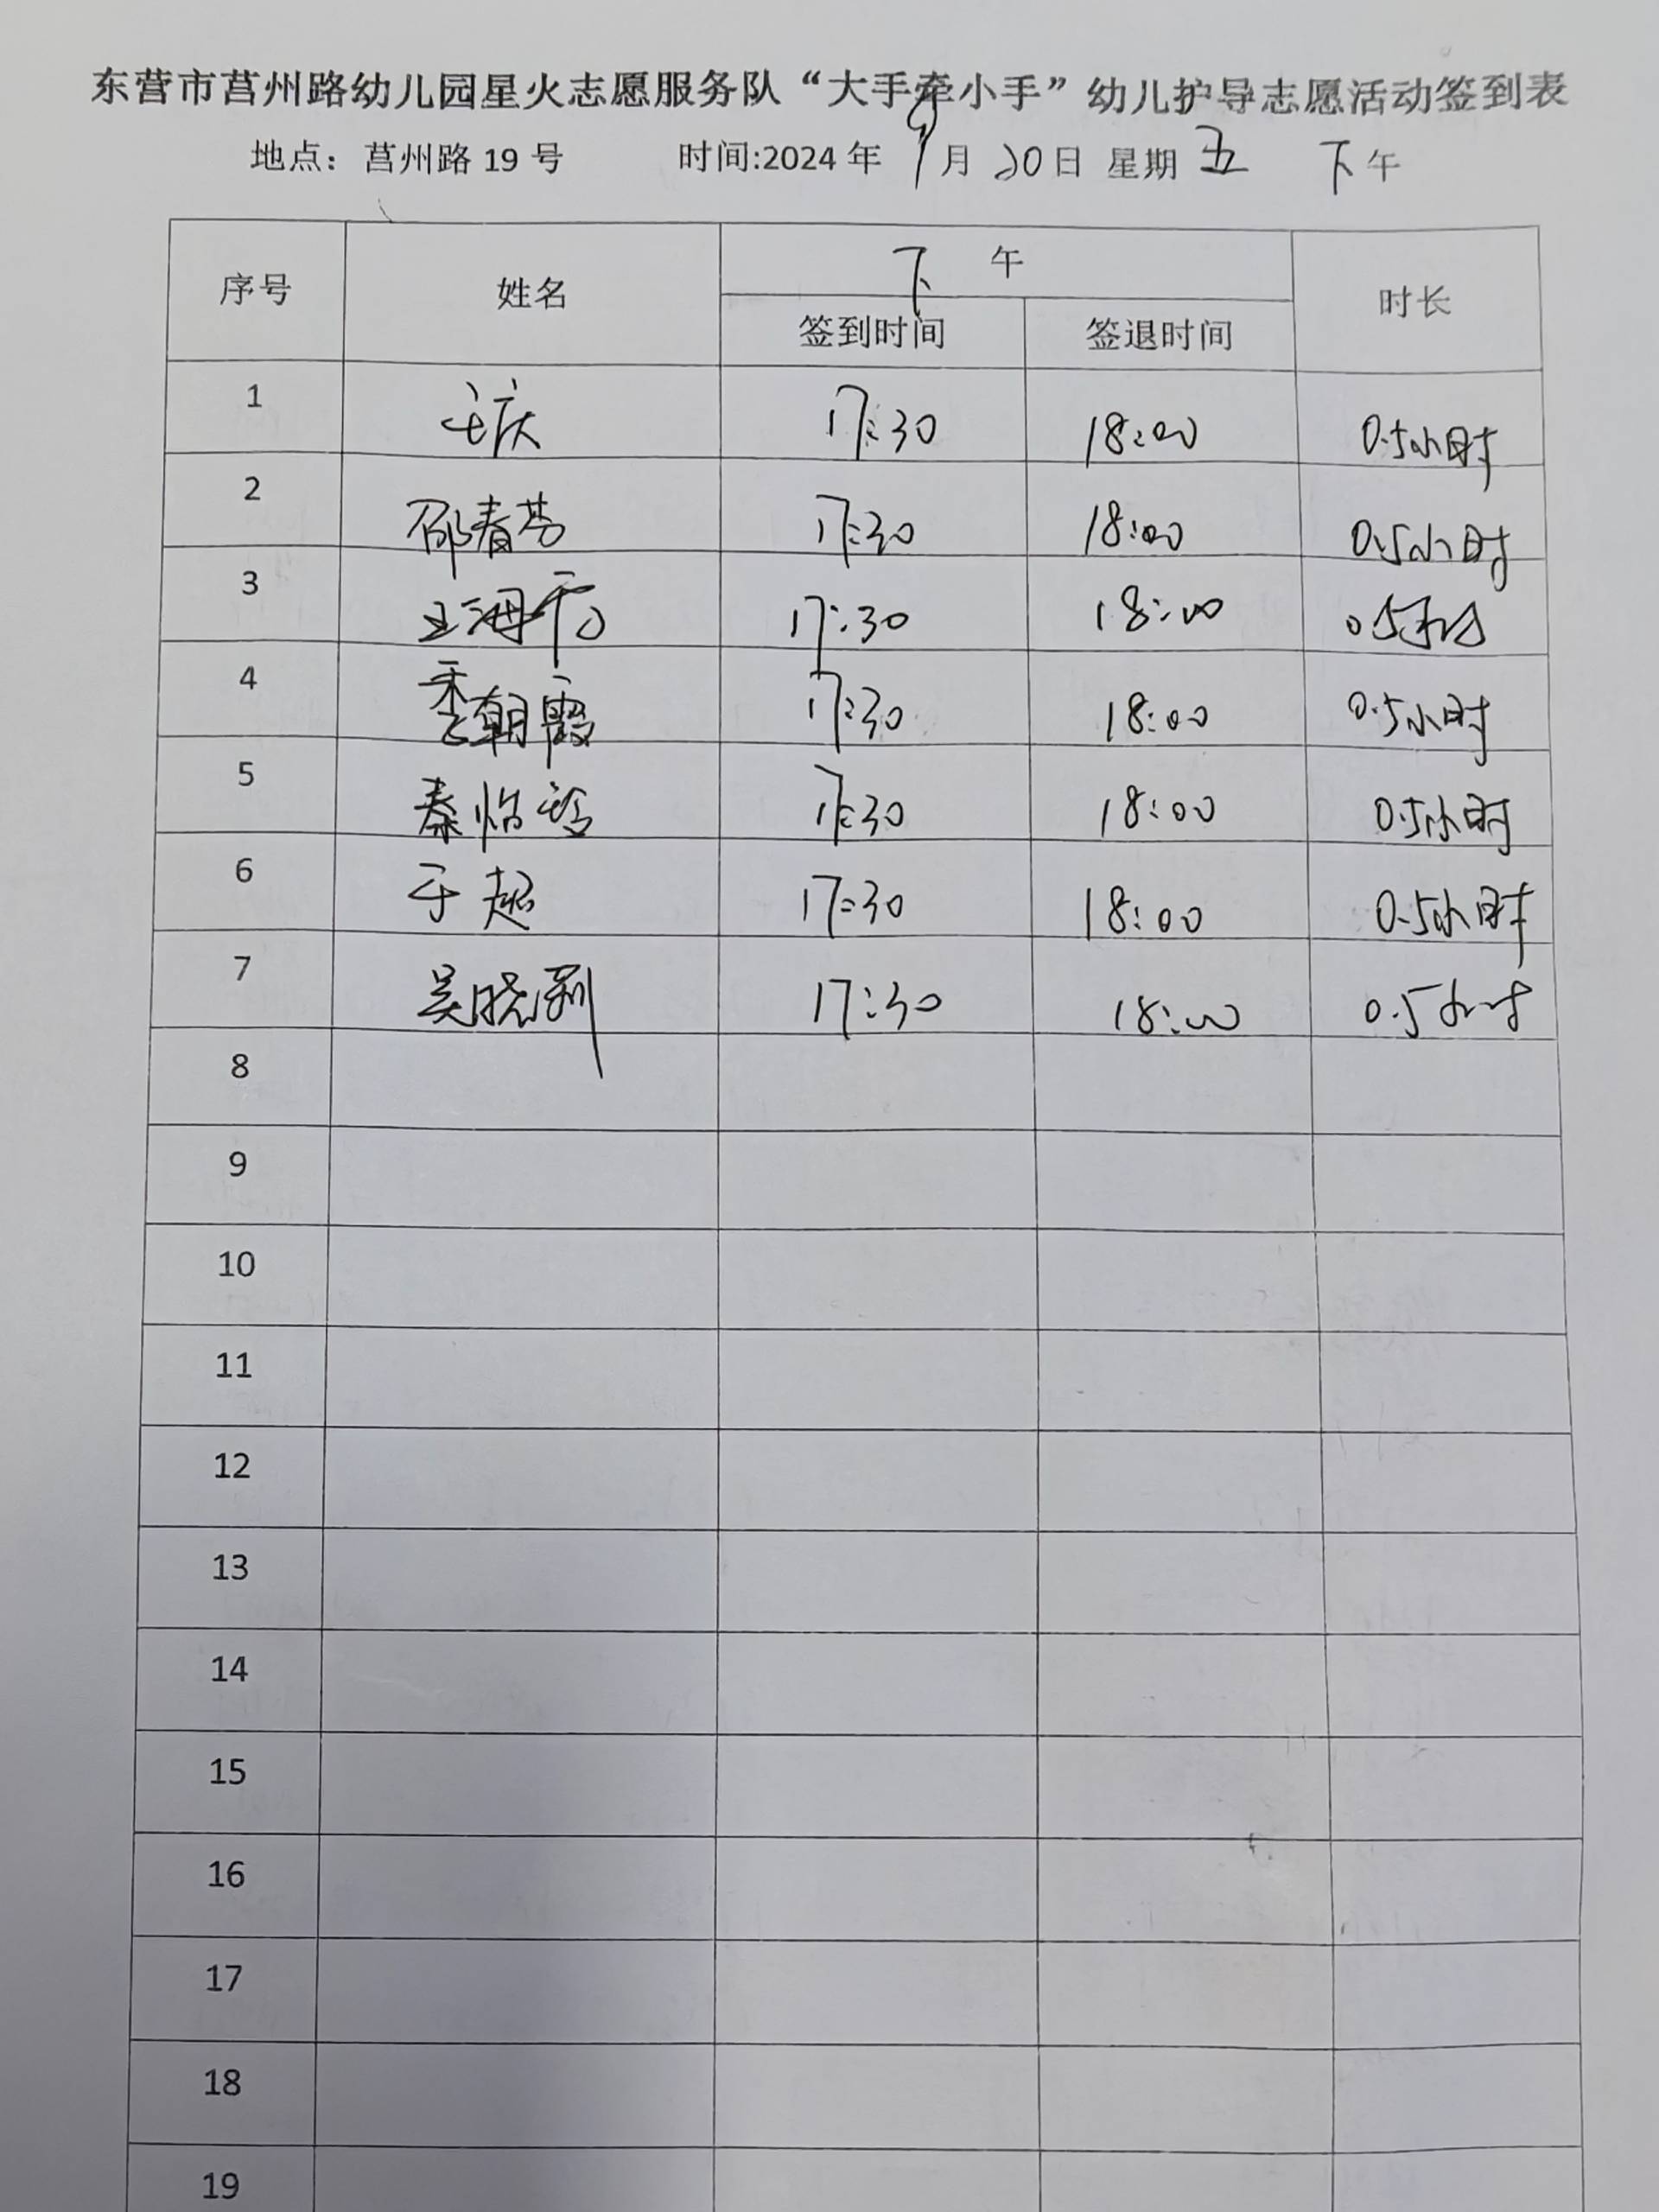 东营市莒州路幼儿园星火志愿服务队“大手牵小手”幼儿护导志愿活动签到表
地点：莒州路 19 号 时间:2024 年 9 月 20 日 星期 五 下 午
序号 姓名 下 午 时长
签到时间 签退时间
1 17:30 18:00 0.5小时
2 邵春芳 17:30 18:00 0.5小时
3 王海 17:30 18:00 0.5小时
4 季朝霞 17:30 18:00 0.5小时
5 秦怡玲 17:30 18:00 0.5小时
6 于超 17:30 18:00 0.5小时
7 吴晓 17:30 18:00 0.5小时
8
9
10
11
12
13
14
15
16
17
18
19